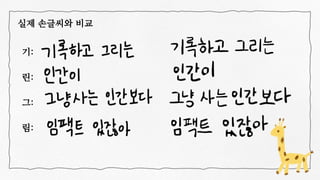 실제 손글씨와 비교
기: 기록하고 그리는 기록하고 그리는
린: 인간이 인간이
그: 그냥 사는 인간보다 그냥 사는 인간보다
림: 임팩트 있잖아 임팩트 있잖아